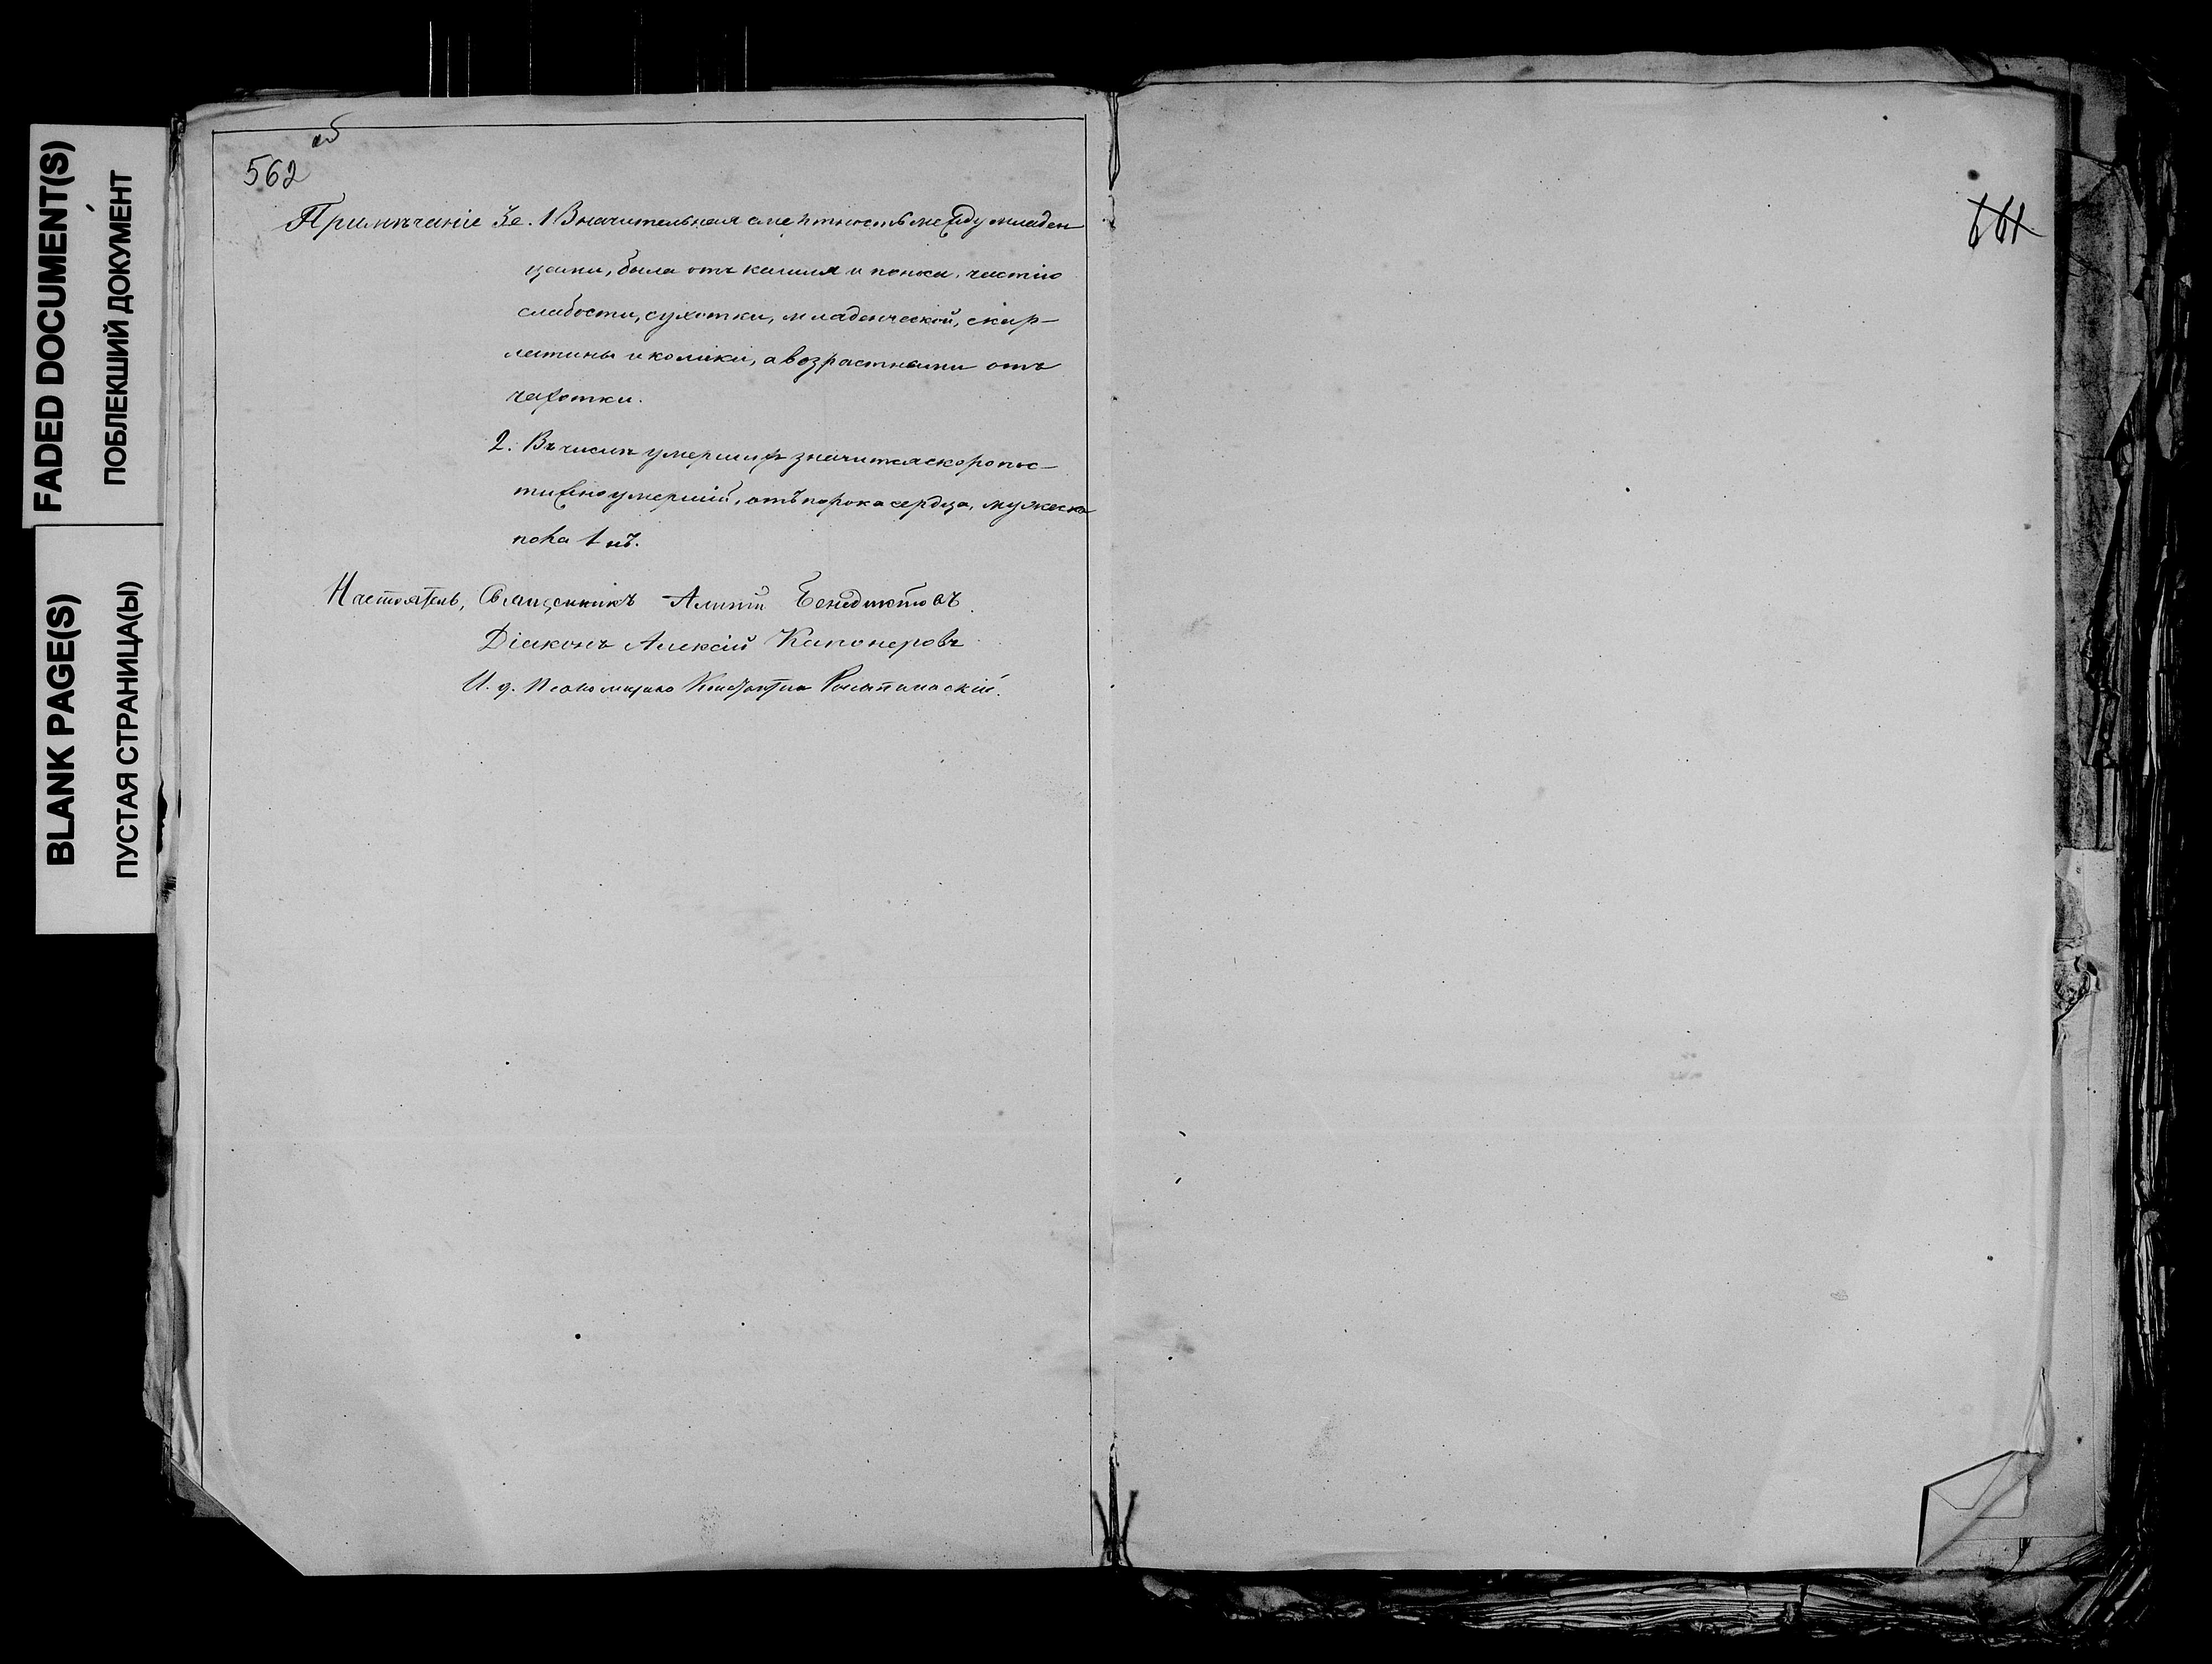 FADED DOCUMENT(S)
ПОБЛЕКШИЙ ДОКУМЕНТ
BLANK PAGE(S)
ПУСТАЯ СТРАНИЦА(Ы)
562 об
Примѣчаніе 3е. 1 Значительная смертность между младен
цами, была отъ кашля и поноса, частію
слабости, сухотки, младенческой, скар-
латины и колики, а возрастными отъ
чахотки.
2. Въ числѣ умершихъ значится скоропос-
тижно умершій, отъ порока сердца, мужеска
пола 1 нъ.
Настоятель, Священникъ Алипій Бенедиктовъ.
Діаконъ Алексій Капонеровъ
И. д. Псаломщика Константинъ
661